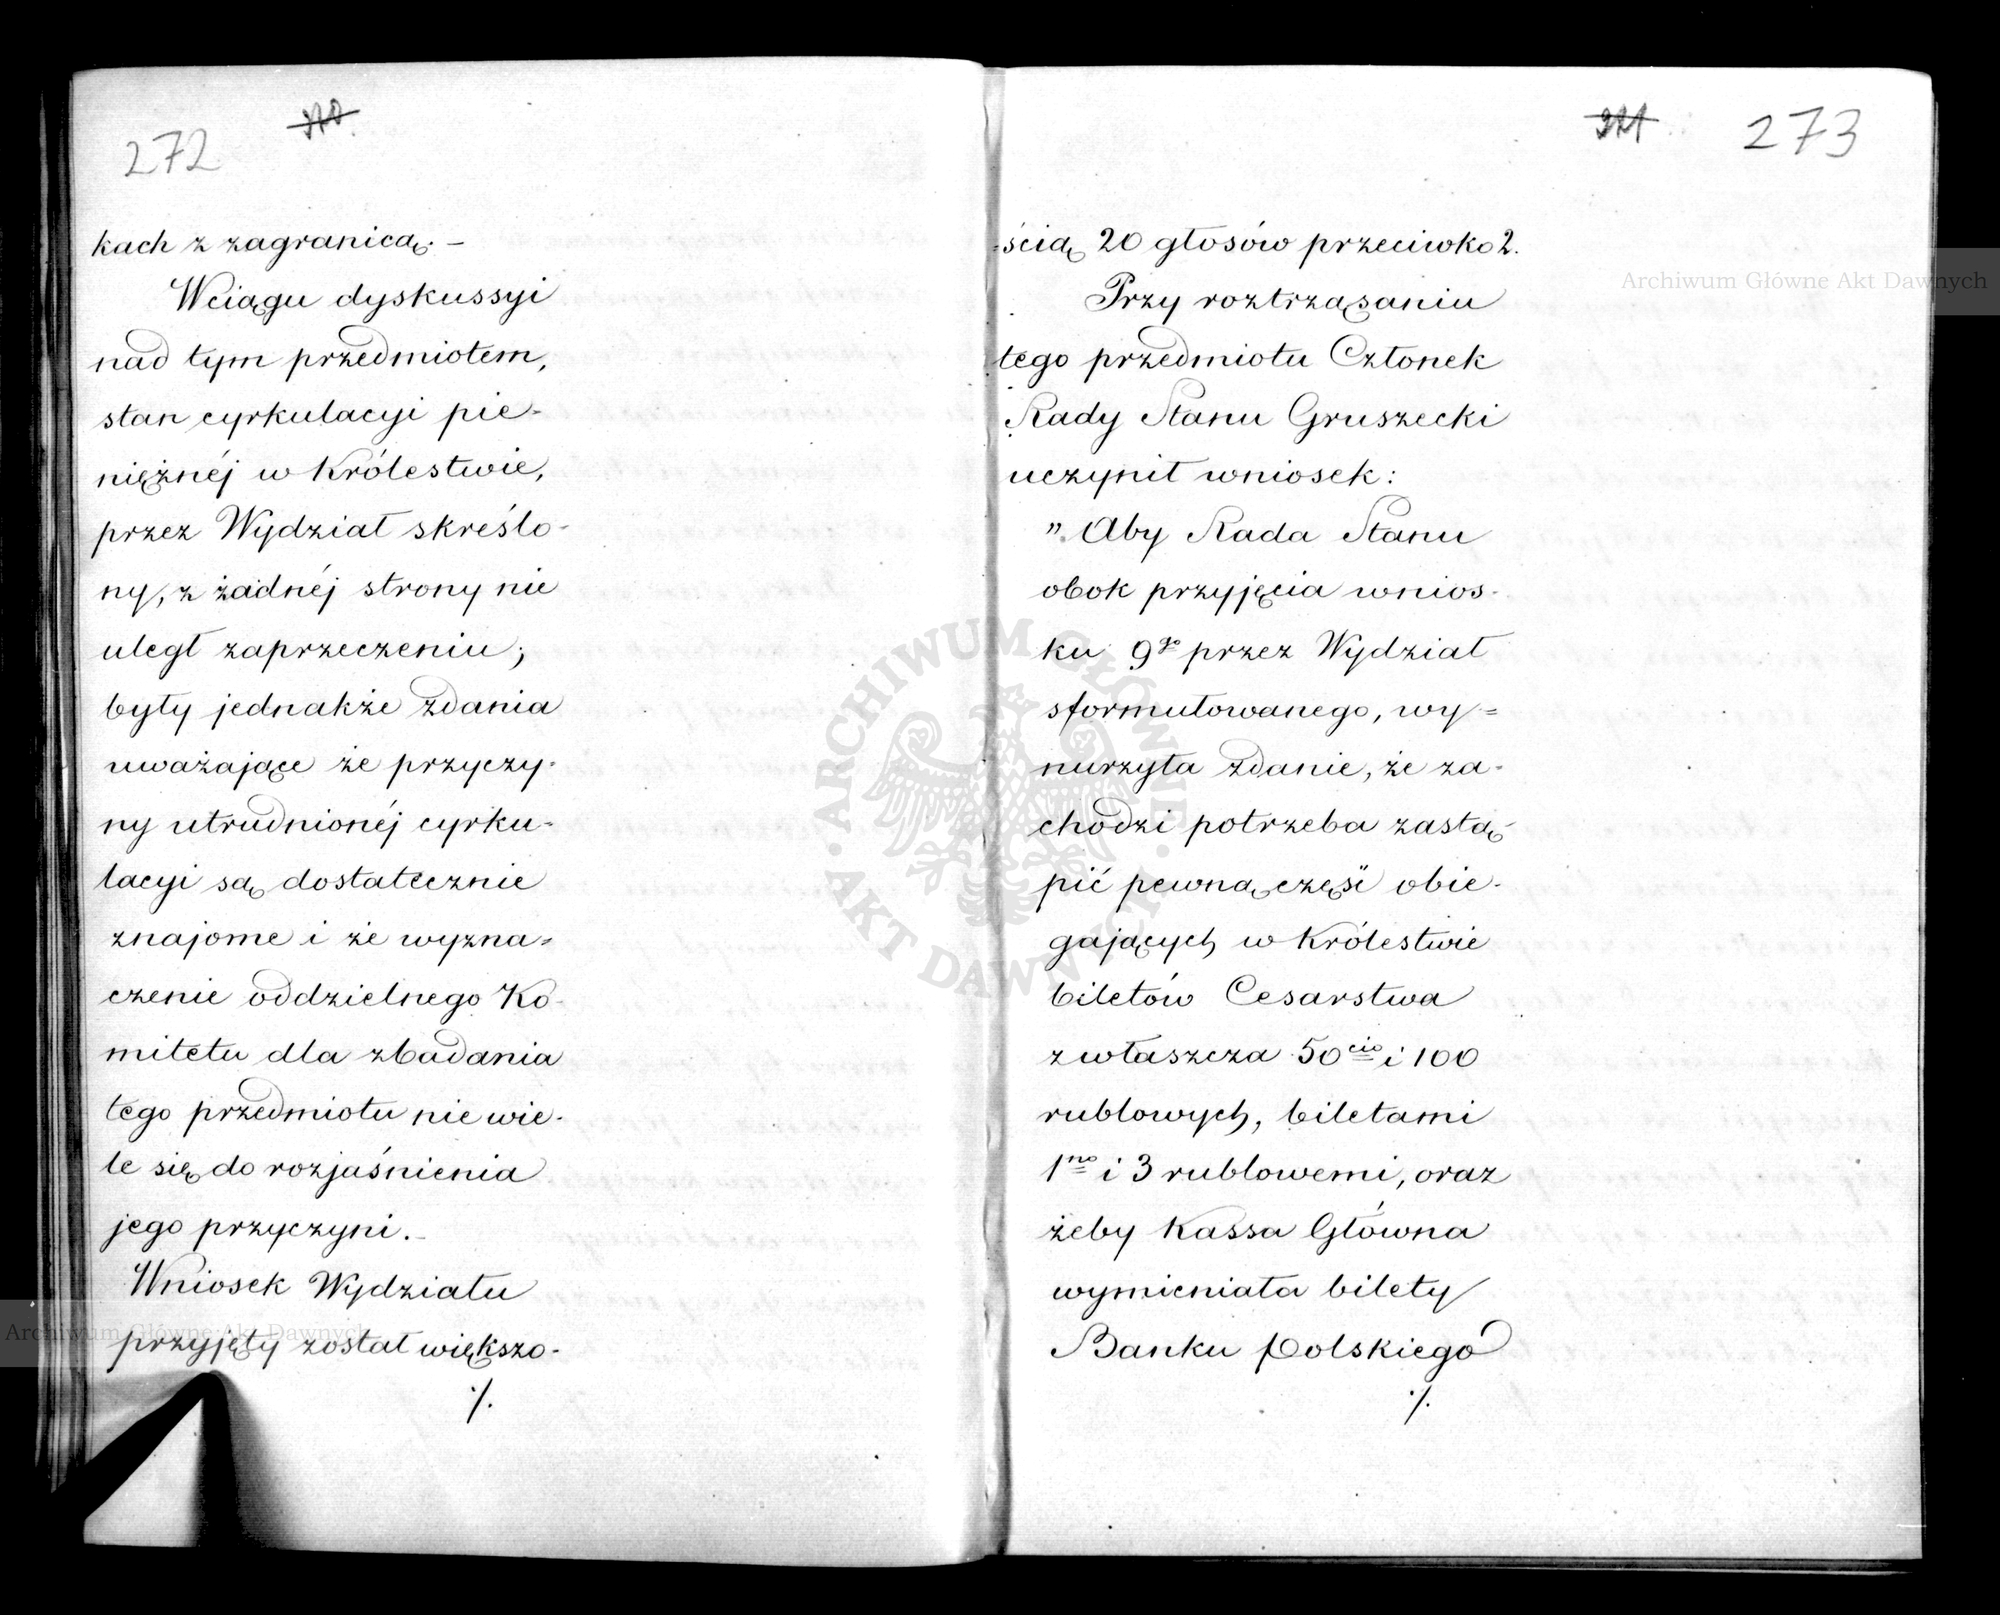 272
kach z zagranicą. –
Wciągu dyskussyi
nad tym przedmiotem,
stan cyrkulacyi pie-
niężnéj w Królestwie,
przez Wydział skreślo-
ny, z żadnéj strony nie
uległ zaprzeczeniu;
były jednakże zdania
uważające że przyczy-
ny utrudnionéj cyrku-
lacyi są dostatecznie
znajome i że wyzna-
czenie oddzielnego Ko-
mitetu dla zbadania
tego przedmiotu nie wie-
le się do rozjaśnienia
jego przyczyni. –
Wniosek Wydziału
przyjęty został większo-
./.
273
-ścią 20 głosów przeciwko 2.
Przy roztrząsaniu
tego przedmiotu Członek
Rady Stanu Gruszecki
uczynił wniosek:
„Aby Rada Stanu
obok przyjęcia wnios-
ku 9go przez Wydział
sformułowanego, wy=
nurzyła zdanie, że za-
chodzi potrzeba zastą-
pić pewną część obie-
gających w Królestwie
biletów Cesarstwa
zwłaszcza 50cio i 100
rublowych, biletami
1no i 3 rublowemi, oraz
żeby Kassa Główna
wymieniała bilety
Banku Polskiego
./.
Archiwum Główne Akt Dawnych
ARCHIWUM GŁÓWNE AKT DAWNYCH
Archiwum Główne Akt Dawnych